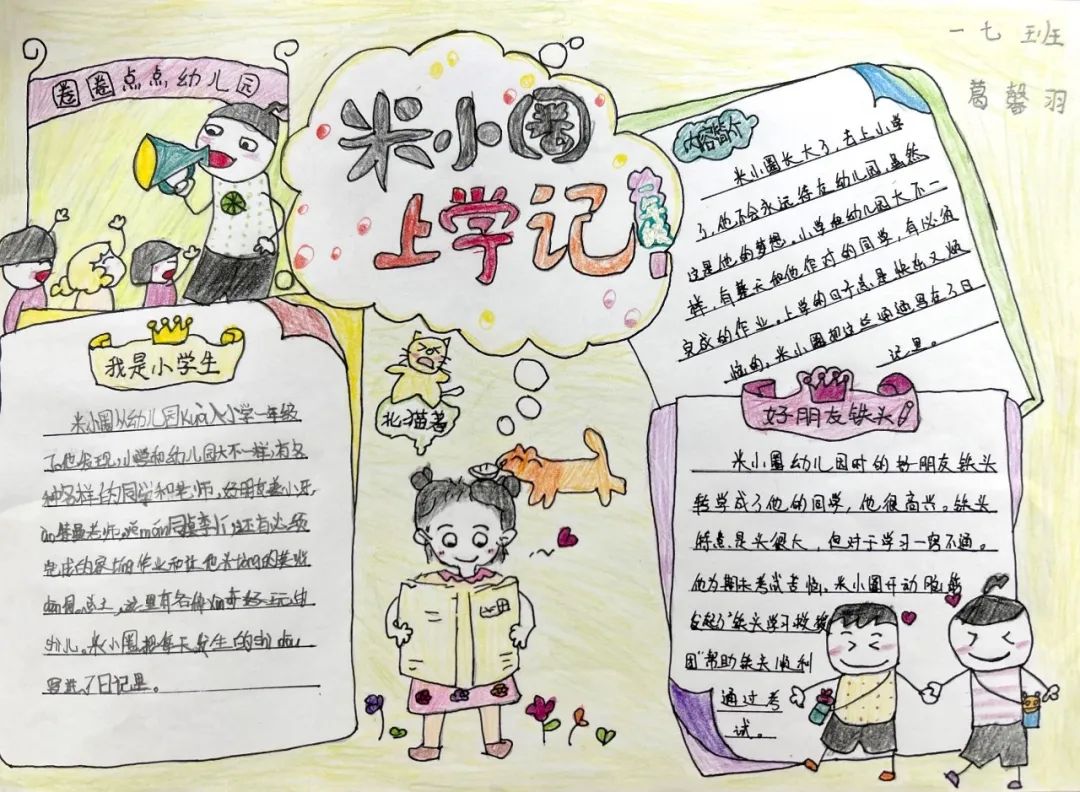 一七班
葛馨羽
圈圈点点幼儿园
米小圈
上学记
一年级
内容简介
米小圈长大了，去上小学
了，他不会永远待在幼儿园，虽然
这是他的梦想。小学和幼儿园大不一
样，有整天和他作对的同学，有必须
完成的作业。上学的日子总是快乐又烦
恼的，米小圈把这些通通写在了日
记里。
我是小学生
米小圈从幼儿园kuà入小学一年级
了。他发现，小学和幼儿园大不一样，有各
种各样的同学和老师，好朋友姜小牙，
老师，同桌李 还有必须
完成的家长的作业和让他头
这里有各种 好玩的
shì儿。米小圈把每天发生的shì
写进了日记里。
北猫著
好朋友铁头
米小圈幼儿园时的好朋友铁头
转学成了他的同学，他很高兴。铁头
特点是头很大，但对于学习一窍不通。
他为期末考试苦恼，米小圈开动脑筋
发起了“铁头学习救援
团”帮助铁头顺利
通过考
试。